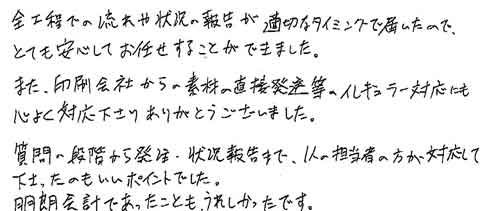 全工程での流れや状況の報告が適切なタイミングで届いたので、
とても安心してお任せすることができました。
また、印刷会社からの素材の直接発送等のイレギュラー対応にも
心よく対応下さりありがとうございました。
質問の段階から発注・状況報告まで、1人の担当者の方が対応して
下さったのもいいポイントでした。
明朗会計であったこともうれしかったです。